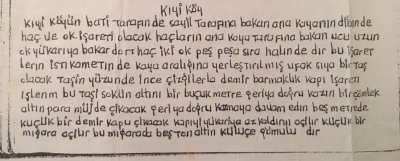 Kıyi Köy
Kıyi Köyün bati Tarafında sayill Tarafına bakan ana Kayanın dibinde
haç ve ok işareti olacak haçların ana kaya Tarafına bakan ucu uzun
ok yukarıya bakar dört haç iki ok peş peşa sıra halinde dir bu işaret
lerin istikometinde kaya aralığına yerleştirilmiş ufak sıya bir taş
olacak Taşin yüzünde ince çizgilerle demir barmaklık kapı işareti
işlenm bu taşi sökün altını bir buçuk metre geriya doğru kazın bir çömlek
altın para müjde çikacak geriya doğru kazmaya davam edin beş metrede
küçük bir demir kapu çikacak kapıyi yukarıya az kaldırın açılır küçük bir
mığara açılır bu mığarada beş ton altın külüçe gömülü dır